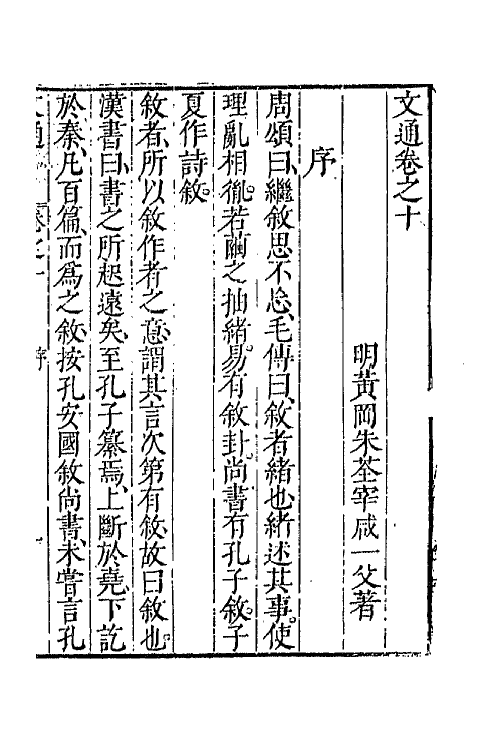 文通卷之十
明黃岡朱荃宰咸一父著
序
周頌曰、繼敘思不忘、毛傳曰、敘者緒也、緒述其事、使
理亂相胤、若繭之抽緒、易有敘卦、尚書有孔子敘、子
夏作詩敘。
敘者、所以敘作者之意、謂其言次第有敘、故曰敘也。
漢書曰、書之所起遠矣、至孔子纂焉、上斷於堯、下訖
於秦、凡百篇、而爲之敘、按孔安國敘尚書、未嘗言孔
序